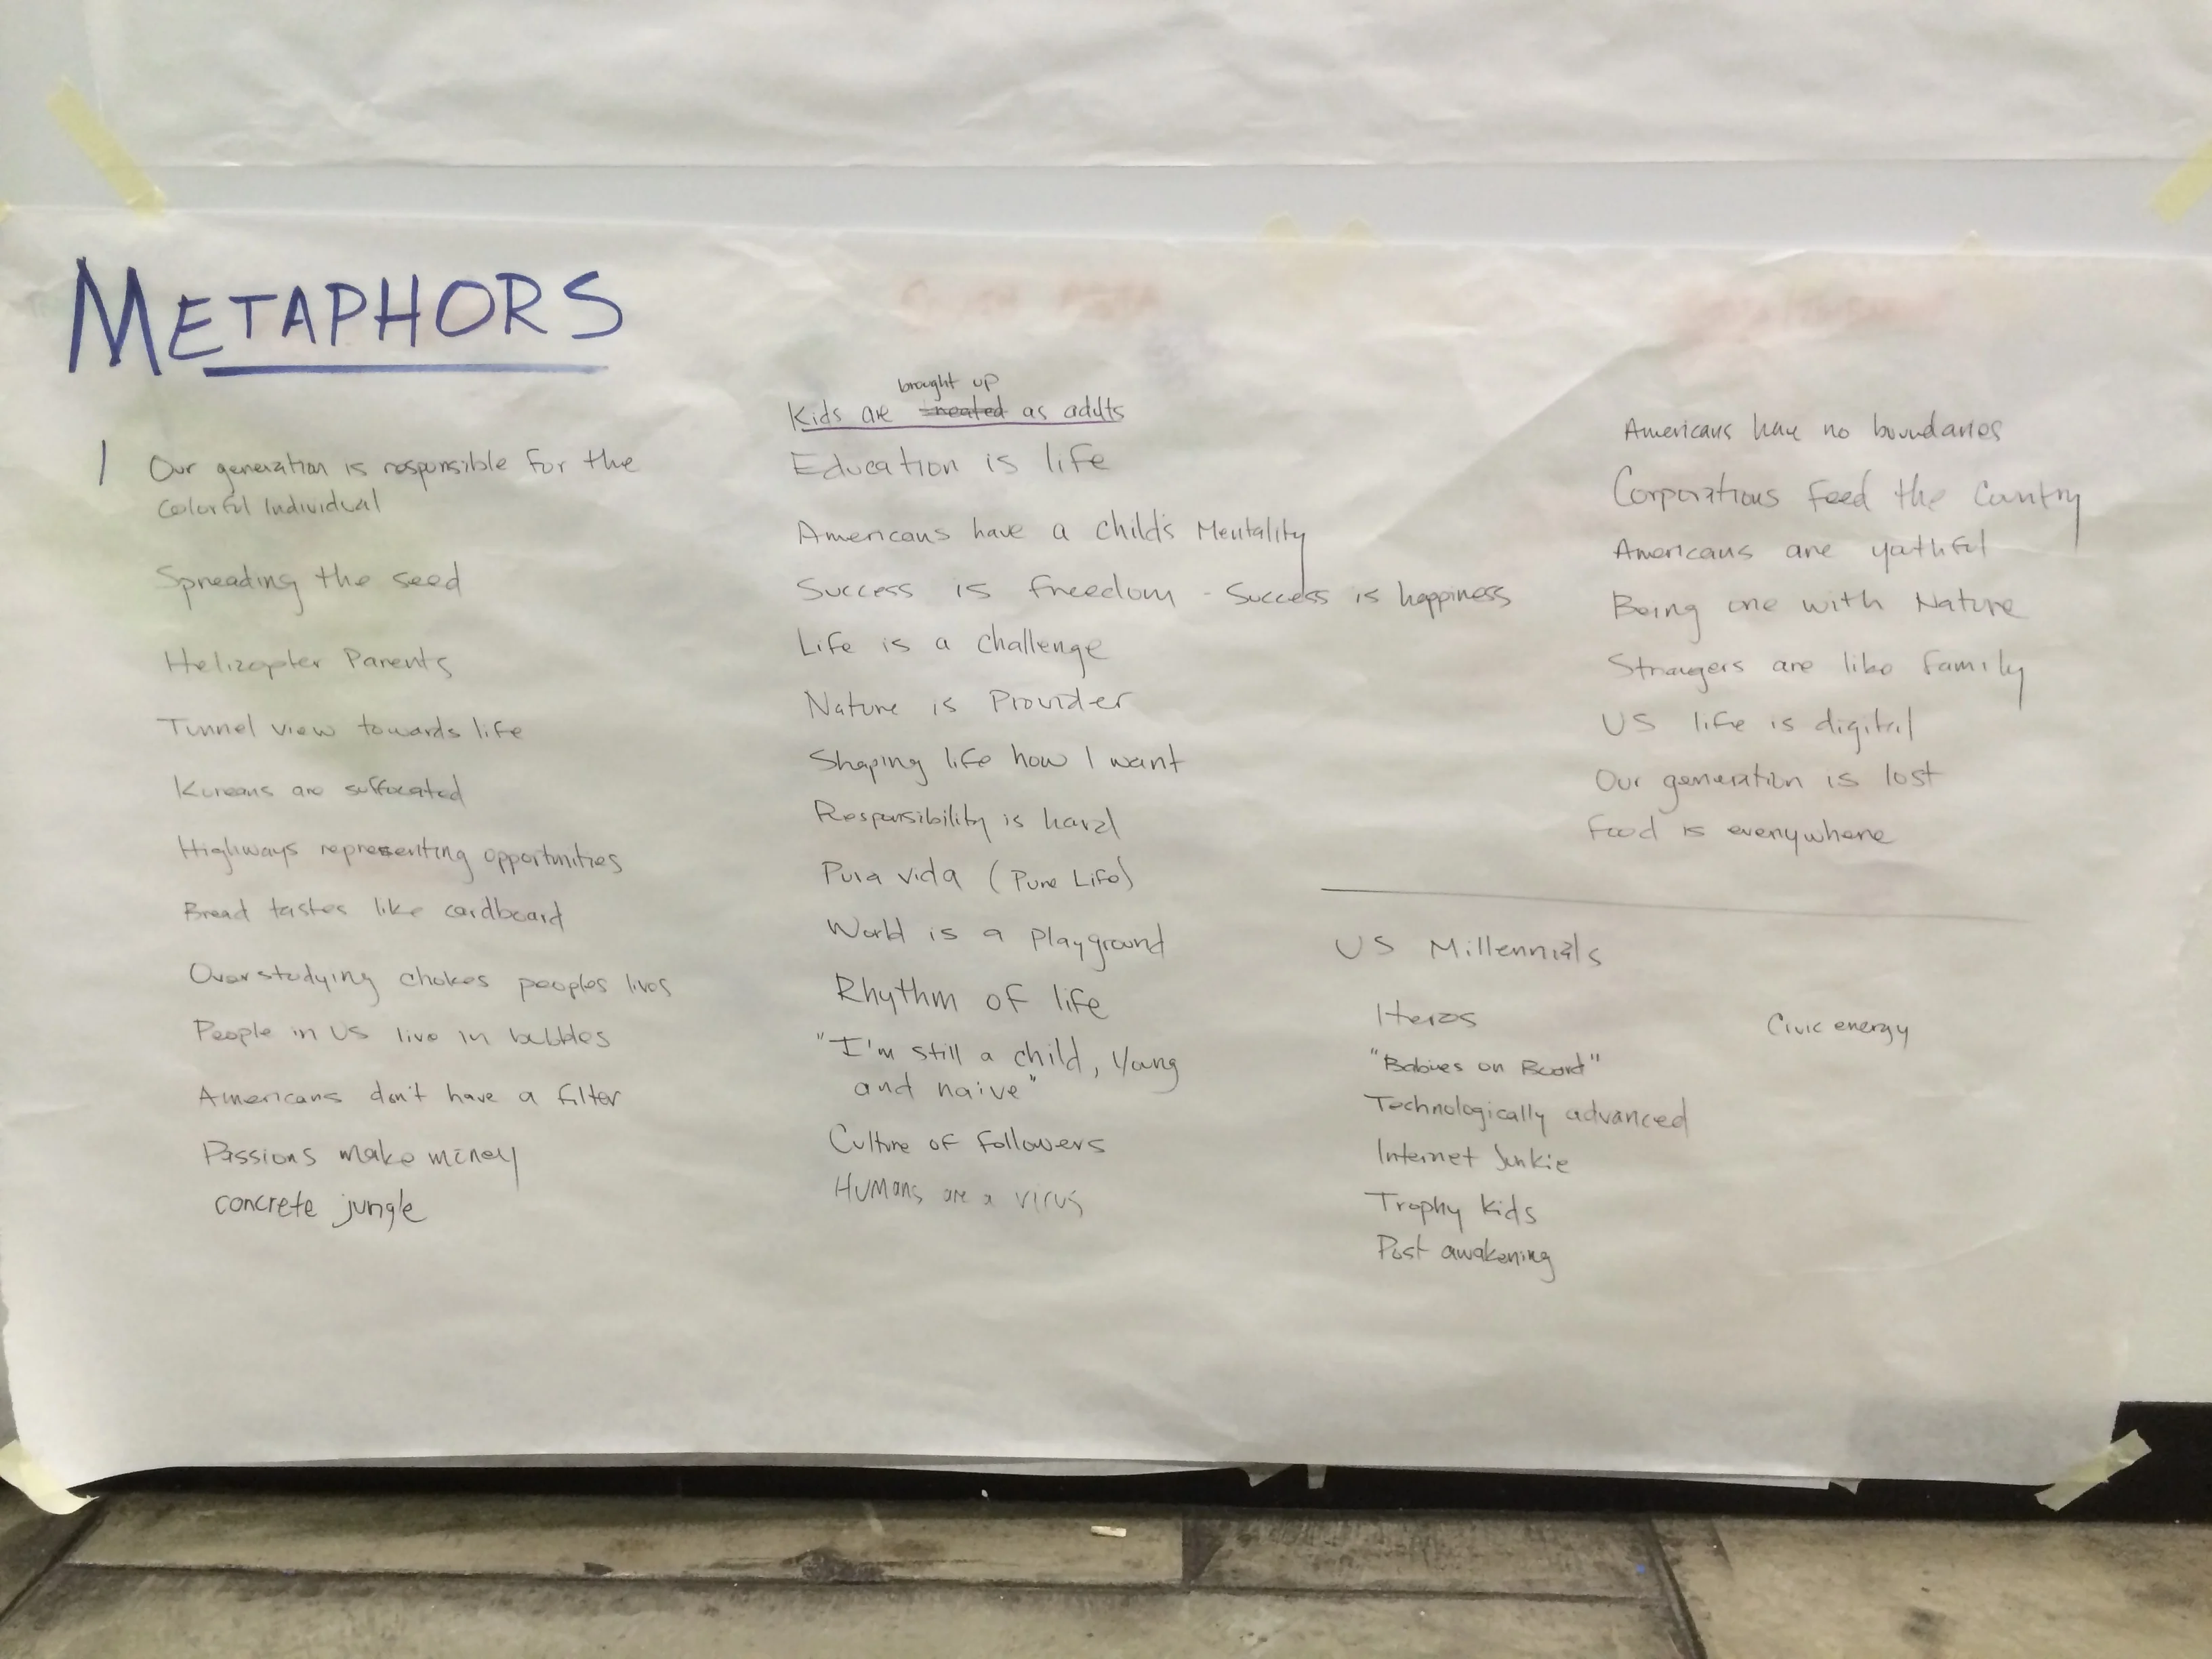 METAPHORS
1 Our generation is responsible for the
Colorful Individual
Spreading the seed
Helicopter Parents
Tunnel view towards life
Koreans are suffocated
Highways representing opportunities
Bread tastes like cardboard
Overstudying chokes peoples lives
People in US live in bubbles
Americans don't have a filter
Passions make money
concrete jungle
brought up
Kids are treated as adults
Education is life
Americans have a child's Mentality
Success is freedom - Success is happiness
Life is a challenge
Nature is Provider
Shaping life how I want
Responsibility is hard
Pura vida (Pure Life)
World is a playground
Rhythm of life
"I'm still a child, young
and naive"
Culture of followers
Humans are a virus
Americans have no boundaries
Corporations feed the Country
Americans are youthful
Being one with Nature
Strangers are like family
US life is digital
Our generation is lost
Food is everywhere
US Millennials
Heros
Civic energy
"Babies on Board"
Technologically advanced
Internet Junkie
Trophy kids
Post awakening